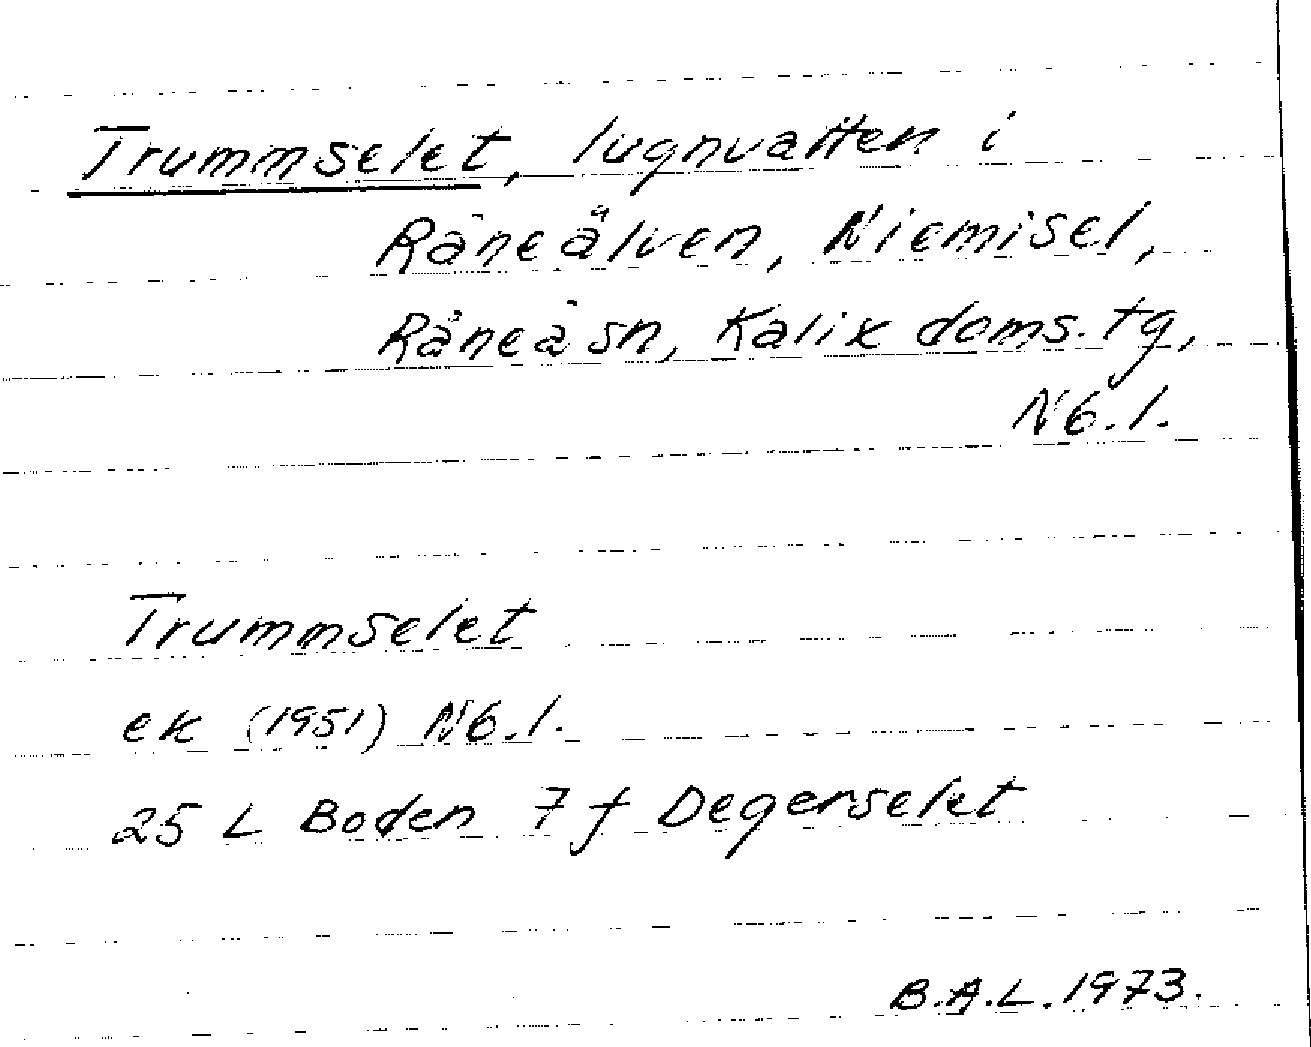 Trummselet, lugnvatten i
Råneälven, Niemisel,
Råneå sn, Kalix doms. tg,
Nb. l.
Trummselet
ek (1951) Nb. l.
25 L Boden 7 f Degerselet
B.A.L. 1973.